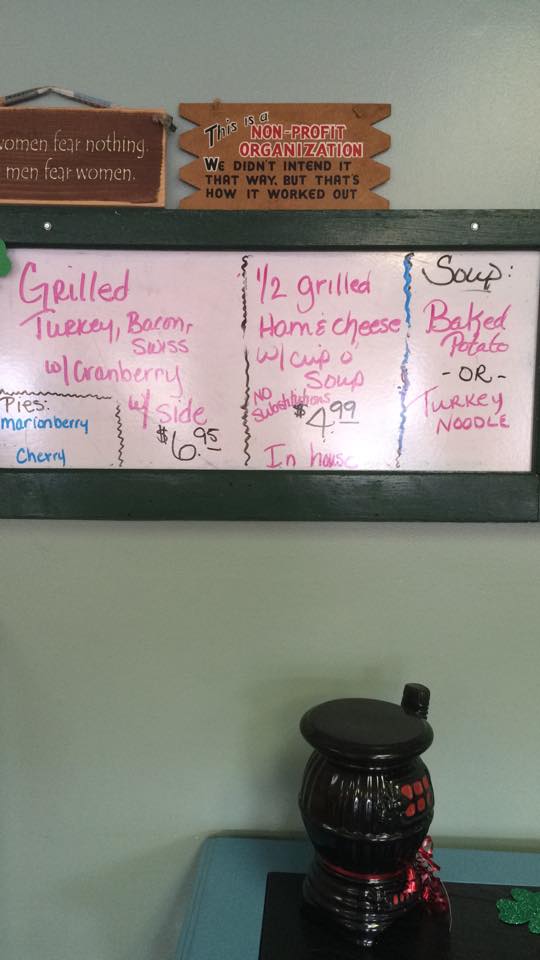 women fear nothing.
men fear women.
This is a
NON-PROFIT
ORGANIZATION
WE DIDN'T INTEND IT
THAT WAY, BUT THAT'S
HOW IT WORKED OUT
Grilled
Turkey, Bacon,
Swiss
w/ Cranberry
w/ side
$6.95
Pies:
marionberry
Cherry
1/2 grilled
Ham & cheese
w/ cup o'
Soup
NO
Substitutions
$4.99
In house
Soup:
Baked
Potato
-OR-
Turkey
NOODLE